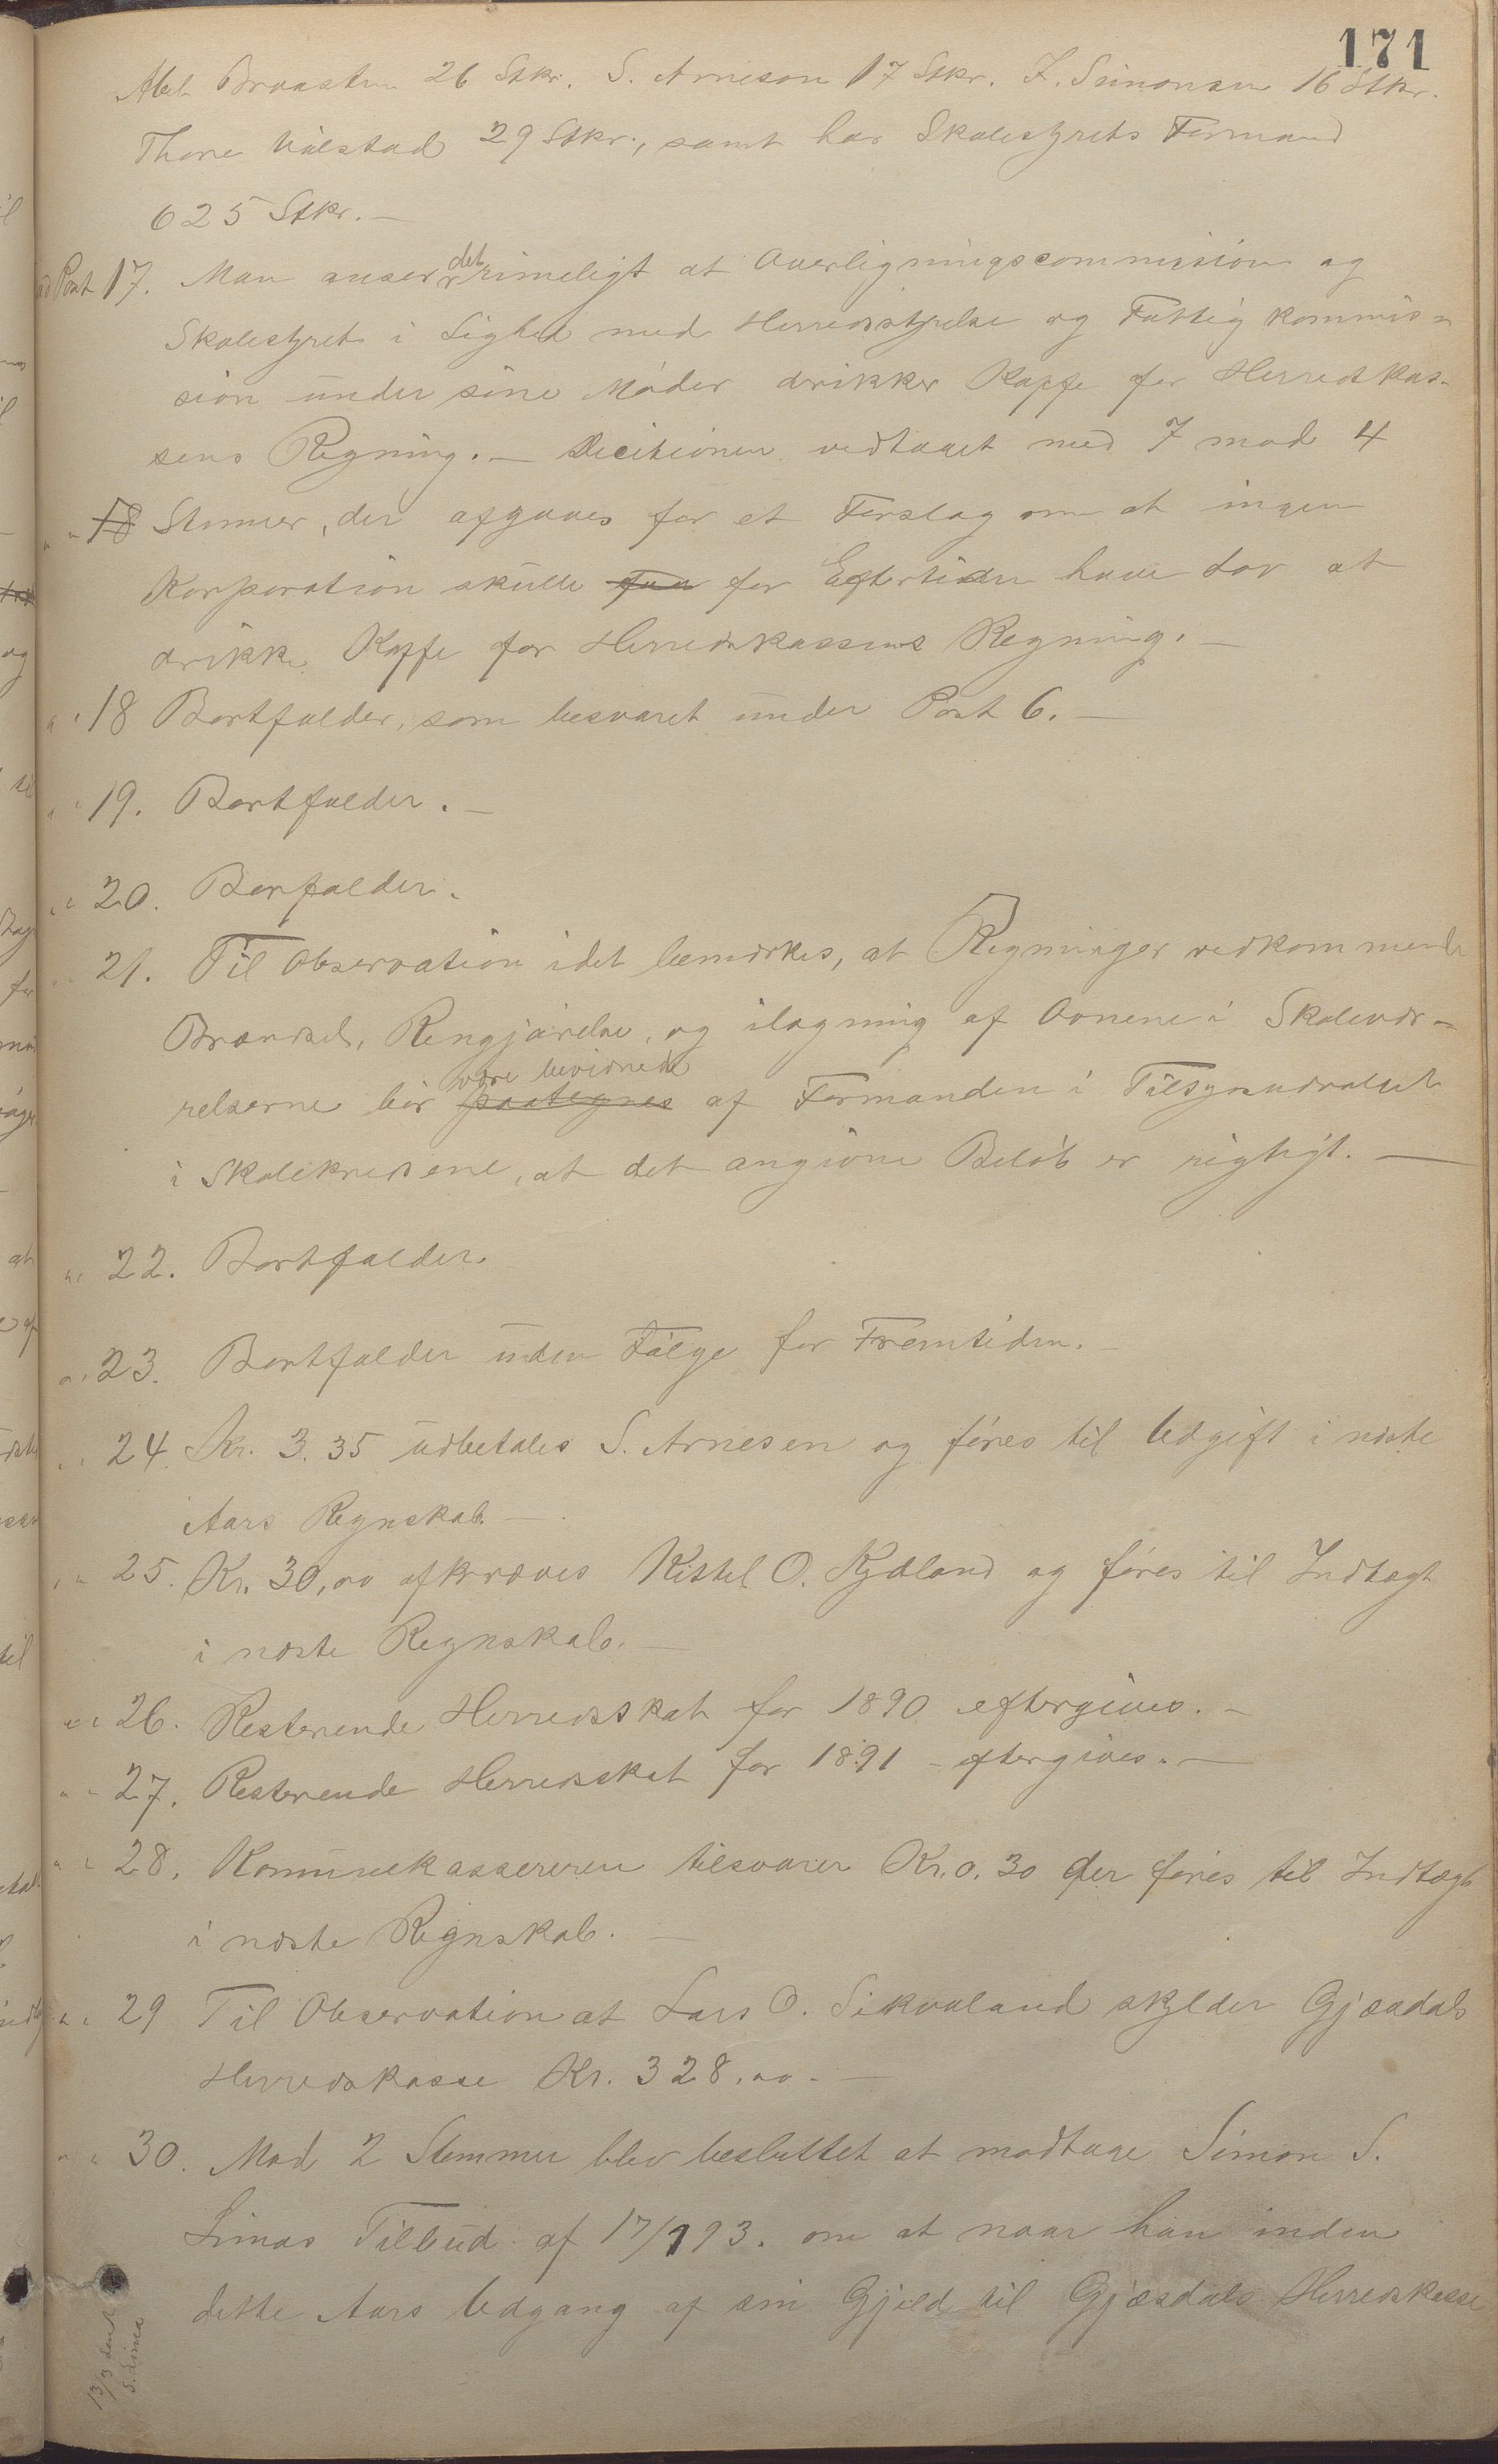 171
Abel Braasten 26 Stkr. S. Arneson 17 Stkr. J. Simonsen 16 Stkr.
Thore Ualstad 29 Stkr., samt har Skolestyrets Formand
625 Stkr. —
ad Post 17. Man anser det rimeligt at Overligningscommission og
Skolestyret i Lighed med Herredsstyrelse og Fattigkommis-
sion under sine Møder drikker Kaffe for Herredskas-
sens Regning. — Decisionen vedtaget med 7 mod 4
" " 18 Stemmer, der afgaves for et Forslag om at ingen
Korporation skulle faa for Eftertiden have Lov at
drikke Kaffe for Herredskassens Regning. —
" " 18 Bortfalder, som besvaret under Post 6. —
" " 19. Bortfalder. —
" " 20. Borfalder.
" " 21. Til Observation idet bemærkes, at Regninger vedkommende
Brændsel, Rengjørelse, og ilægning af Ovnene i Skolevær-
være bevidnede
relserne bør paategnes af Formanden i Tilsynsudvalget
i Skolekredsene, at det angivne Beløb er rigtigt. —
" " 22. Bortfalder.
" " 23. Bortfalder uden Følge for Fremtiden. —
" " 24. Kr. 3.35 udbetales S. Arnesen og føres til Udgift i næste
Aars Regnskab. —
" " 25. Kr. 30,00 afkræves Kittel O. Kydland og føres til Indtægt
i næste Regnskab. —
" " 26. Resterende Herredsskat for 1890 eftergives. —
" " 27. Resterende Herredsskat for 1891 - eftergives. —
" " 28. Kommunekassereren tilsvarer Kr. 0.30 der føres til Indtægt
i næste Regnskab. —
" " 29 Til Observation at Lars O. Sikvaland skylder Gjæsdals
Herredskasse Kr. 328.00. —
" " 30. Mod 2 Stemmer blev besluttet at modtage Simon S.
Limas Tilbud af 17/1 93. om at naar han inden
dette Aars Udgang af sin Gjeld til Gjæsdals Herredskasse
13/3 sent
S. Lima